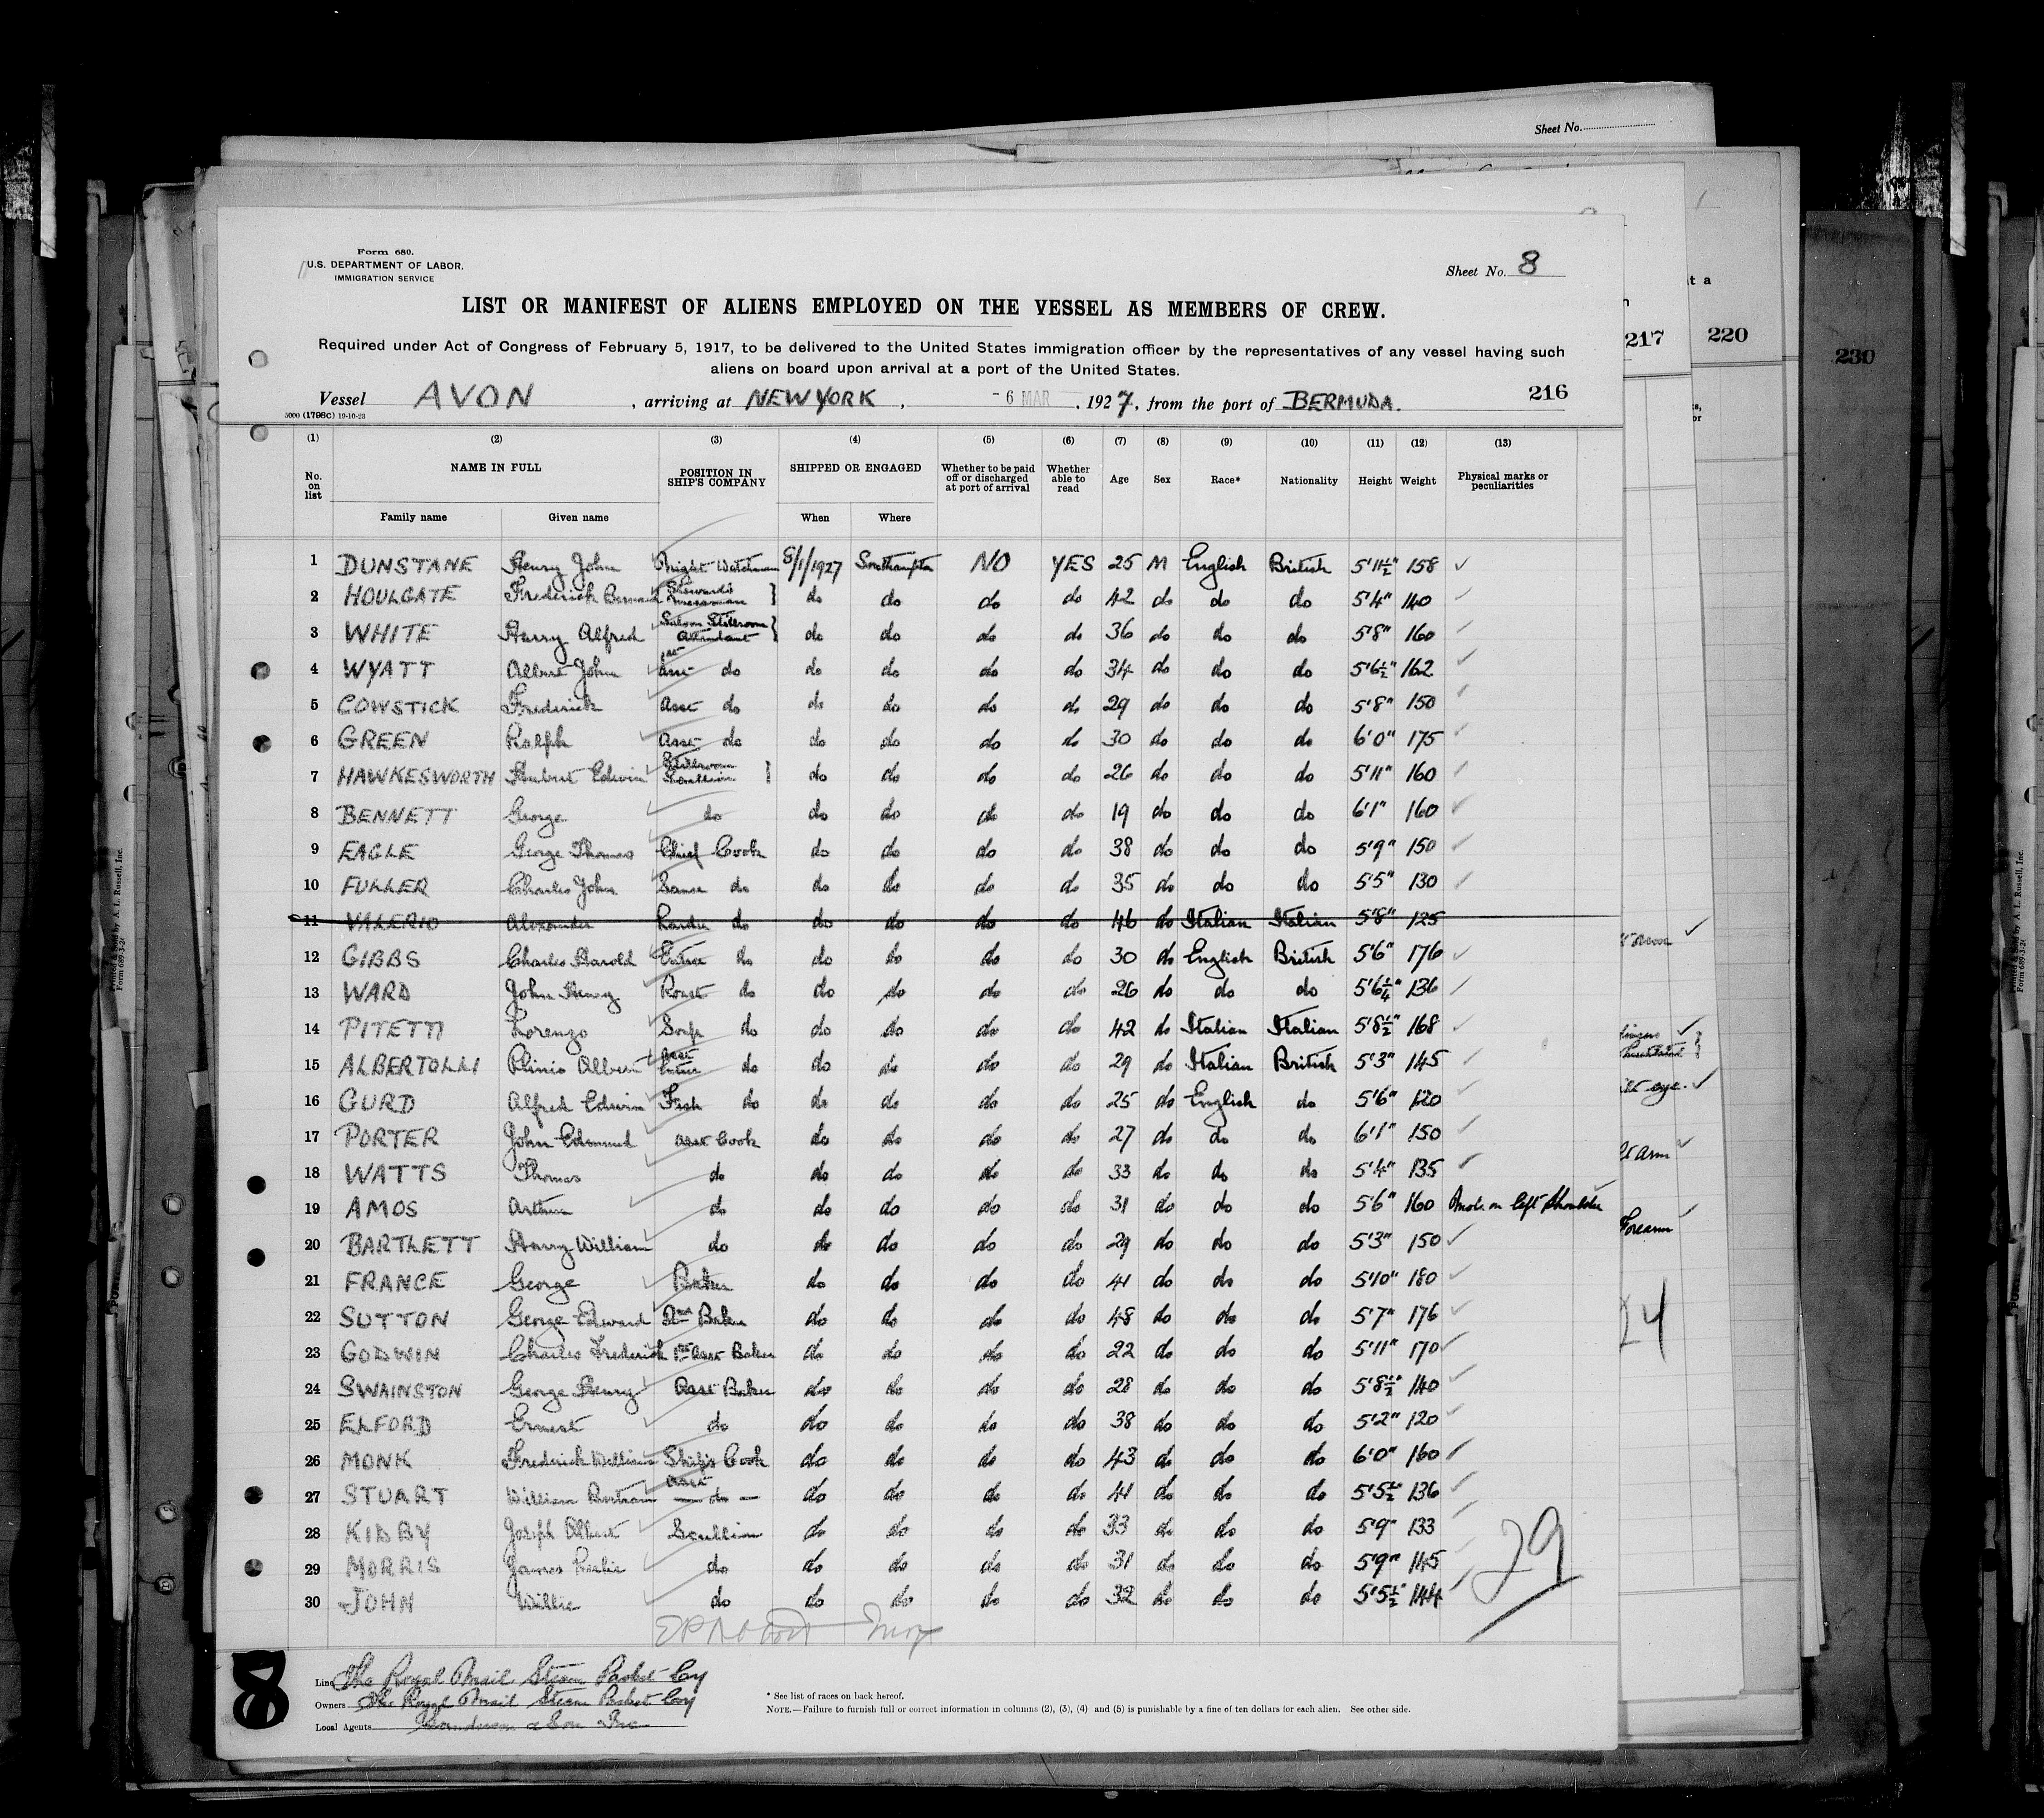 Sheet No.
Form 680.
U.S. DEPARTMENT OF LABOR.
IMMIGRATION SERVICE
Sheet No. 8
LIST OR MANIFEST OF ALIENS EMPLOYED ON THE VESSEL AS MEMBERS OF CREW.
Required under Act of Congress of February 5, 1917, to be delivered to the United States immigration officer by the representatives of any vessel having such
aliens on board upon arrival at a port of the United States.
Vessel AVON, arriving at NEW YORK, - 6 MAR, 1927, from the port of BERMUDA. 216
217
220
230
(1) (2) (3) (4) (5) (6) (7) (8) (9) (10) (11) (12) (13)
No. on list NAME IN FULL Family name Given name POSITION IN SHIP'S COMPANY SHIPPED OR ENGAGED When Where Whether to be paid off or discharged at port of arrival Whether able to read Age Sex Race* Nationality Height Weight Physical marks or peculiarities
1 DUNSTANE Henry John Night Watchman 8/1/1927 Southampton NO YES 25 M English British 5'11½" 158
2 HOULGATE Frederick Bernard Steward's Messman do do do do 42 do do do 5'4" 140
3 WHITE Harry Alfred Saloon Stillroom Attendant do do do do 36 do do do 5'8" 160
4 WYATT Albert John 1st Asst do do do do do 34 do do do 5'6½" 162
5 COWSTICK Frederick Asst do do do do do 29 do do do 5'8" 150
6 GREEN Ralph Asst do do do do do 30 do do do 6'0" 175
7 HAWKESWORTH Hubert Edwin Stillroom Scullion do do do do 26 do do do 5'11" 160
8 BENNETT George do do do do do 19 do do do 6'1" 160
9 EAGLE George Thomas Chief Cook do do do do 38 do do do 5'9" 150
10 FULLER Charles John Sauce do do do do do 35 do do do 5'5" 130
11 VALERIO Alexander Larder do do do do do 46 do Italian Italian 5'8" 125
12 GIBBS Charles Harold Entree do do do do do 30 do English British 5'6" 176
13 WARD John Henry Roast do do do do do 26 do do do 5'6¼" 136
14 PITETTI Lorenzo Soup do do do do do 42 do Italian Italian 5'8½" 168
15 ALBERTOLLI Plinio Albert Asst Entree do do do do do 29 do Italian British 5'3" 145
16 GURD Alfred Edwin Fish do do do do do 25 do English do 5'6" 120
17 PORTER John Edmund Asst Cook do do do do 27 do do do 6'1" 150
18 WATTS Thomas do do do do do 33 do do do 5'4" 135
19 AMOS Arthur do do do do do 31 do do do 5'6" 160 Mole on left Shoulder
20 BARTLETT Harry William do do do do do 29 do do do 5'3" 150
21 FRANCE George Baker do do do do 41 do do do 5'10" 180
22 SUTTON George Edward 2nd Baker do do do do 48 do do do 5'7" 176
23 GODWIN Charles Frederick 1st Asst Baker do do do do 22 do do do 5'11" 170
24 SWAINSTON George Henry Asst Baker do do do do 28 do do do 5'8½" 140
25 ELFORD Ernest do do do do do 38 do do do 5'2" 120
26 MONK Frederick William Ship's Cook do do do do 43 do do do 6'0" 160
27 STUART William Bertram Asst — do — do do do do 41 do do do 5'5½" 136
28 KIDBY Joseph Albert Scullion do do do do 33 do do do 5'9" 133
29 MORRIS James Leslie do do do do do 31 do do do 5'9" 145
30 JOHN Willie do do do do do 32 do do do 5'5½" 144
29
eye.
arm
Forearm
24
8
Line The Royal Mail Steam Packet Coy
Owners The Royal Mail Steam Packet Coy
Local Agents Sanderson & Son Inc
* See list of races on back hereof.
NOTE.—Failure to furnish full or correct information in columns (2), (3), (4) and (5) is punishable by a fine of ten dollars for each alien. See other side.
5000 (1798C) 19-10-23
Printed & Sold by A. L. Russell, Inc.
Form 689-3-24